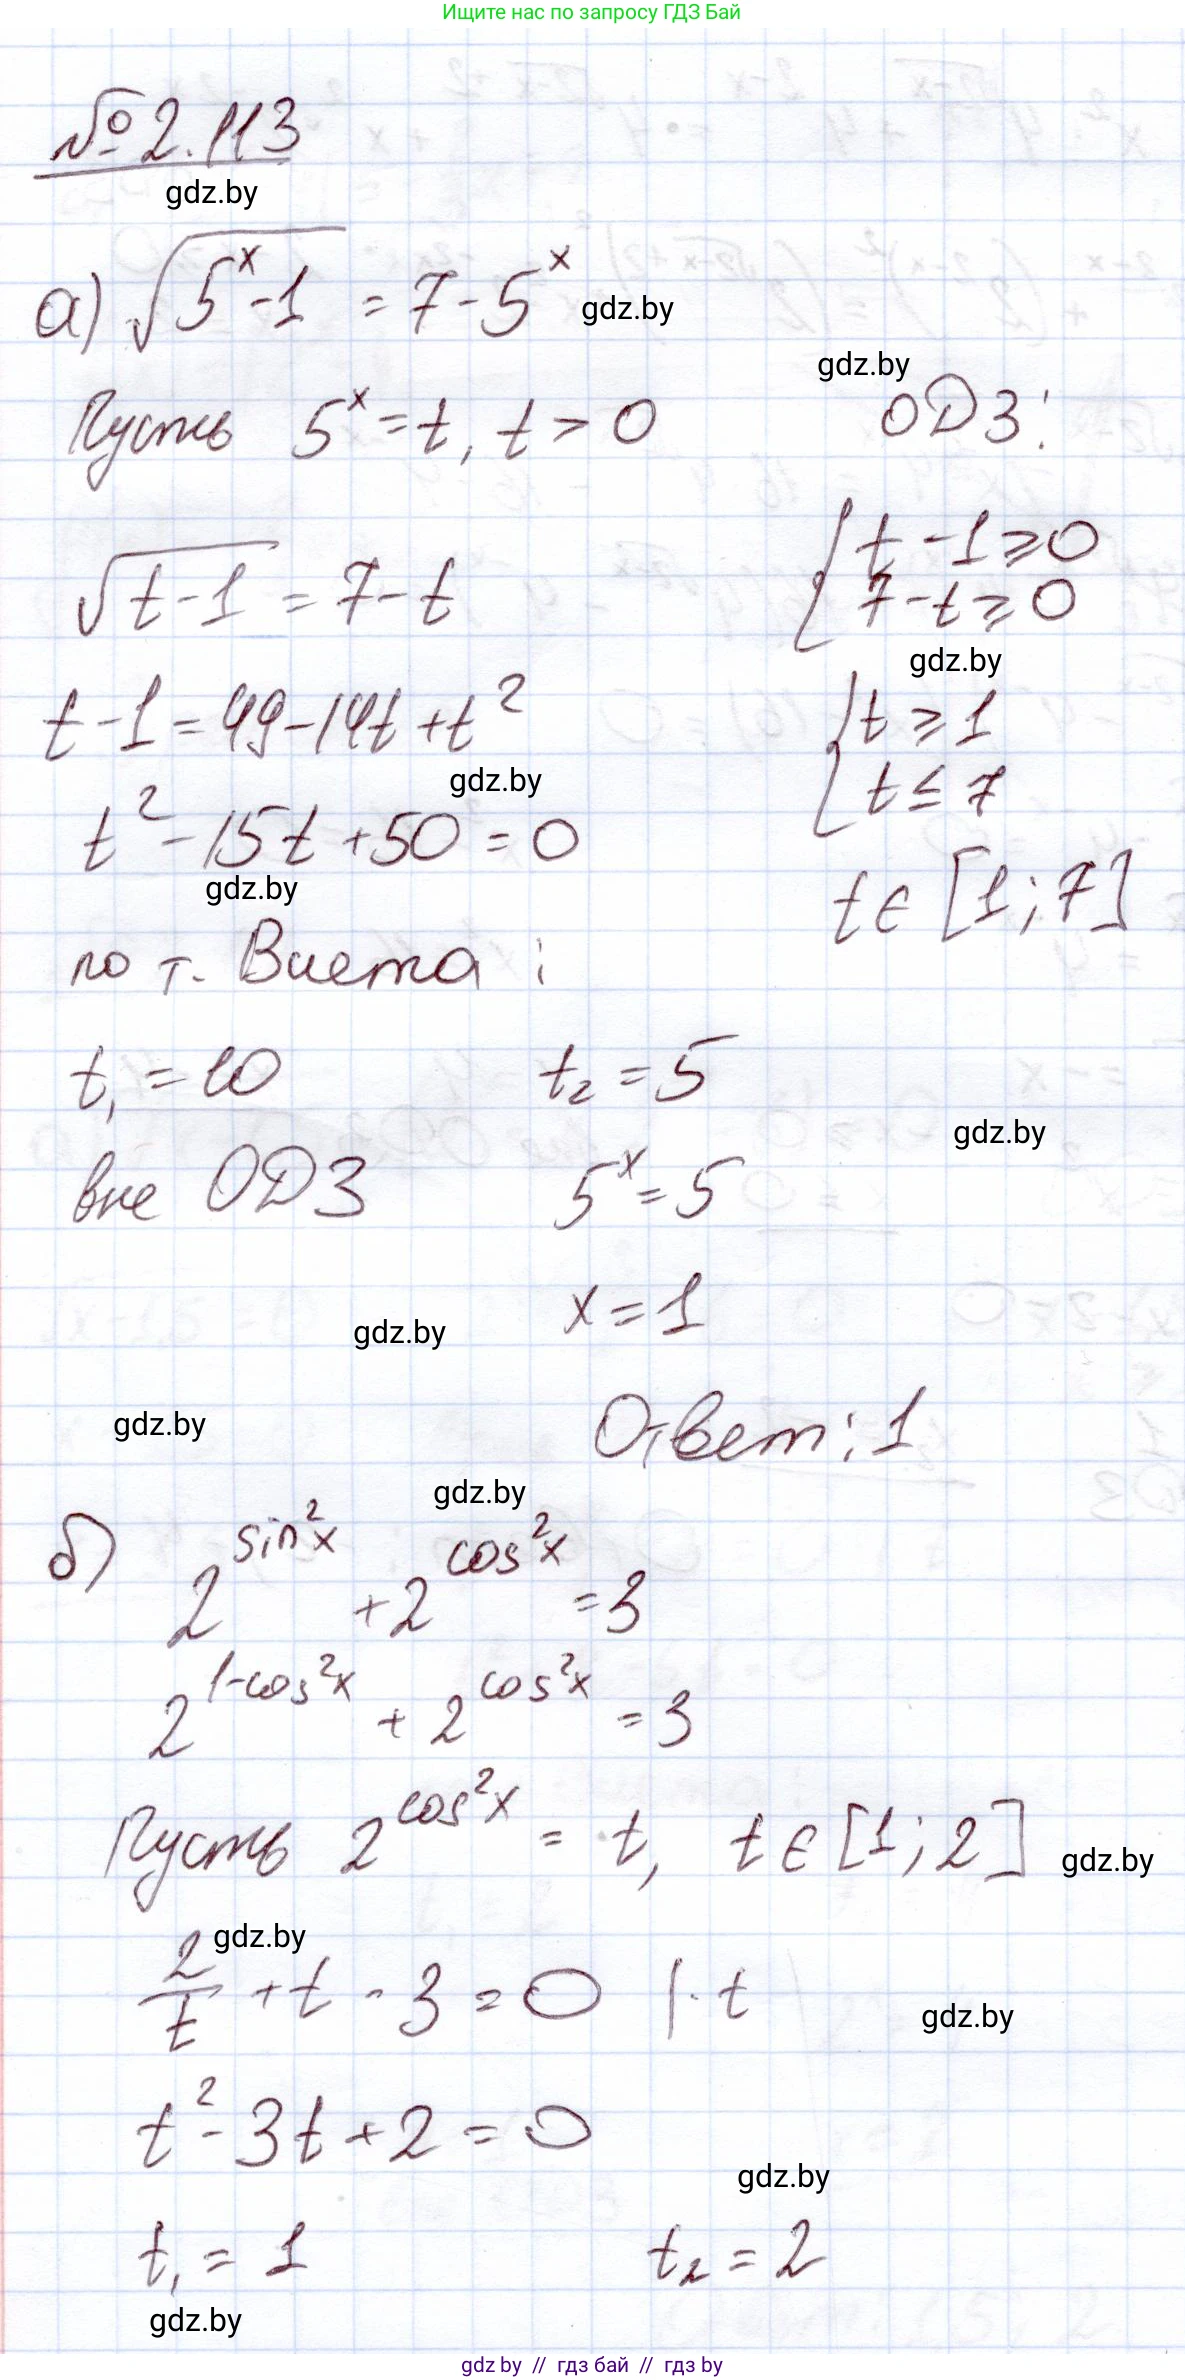 Ищите нас по запросу ГДЗ Бай
№ 2.113
gdz.by
а) √(5^x - 1) = 7 - 5^x
gdz.by
gdz.by
Пусть 5^x = t, t > 0
ОДЗ:
√(t - 1) = 7 - t
{ t - 1 ⩾ 0
7 - t ⩾ 0
gdz.by
t - 1 = 49 - 14t + t^2
{ t ⩾ 1
t ≤ 7
gdz.by
t^2 - 15t + 50 = 0
gdz.by
t ∈ [1; 7]
по т. Виета:
t₁ = 10 t₂ = 5
gdz.by
вне ОДЗ 5^x = 5
x = 1
gdz.by
gdz.by
Ответ: 1
gdz.by
б) 2^(sin^2 x) + 2^(cos^2 x) = 3
2^(1-cos^2 x) + 2^(cos^2 x) = 3
Пусть 2^(cos^2 x) = t, t ∈ [1; 2]
gdz.by
gdz.by
2/t + t - 3 = 0 | · t
gdz.by
t^2 - 3t + 2 = 0
gdz.by
t₁ = 1 t₂ = 2
gdz.by
gdz.by // гдз бай // gdz by